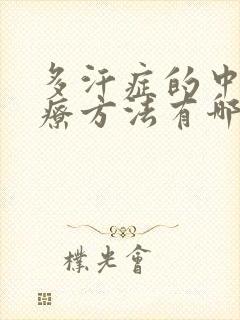 多汗症的中
療方法有哪
樸光會